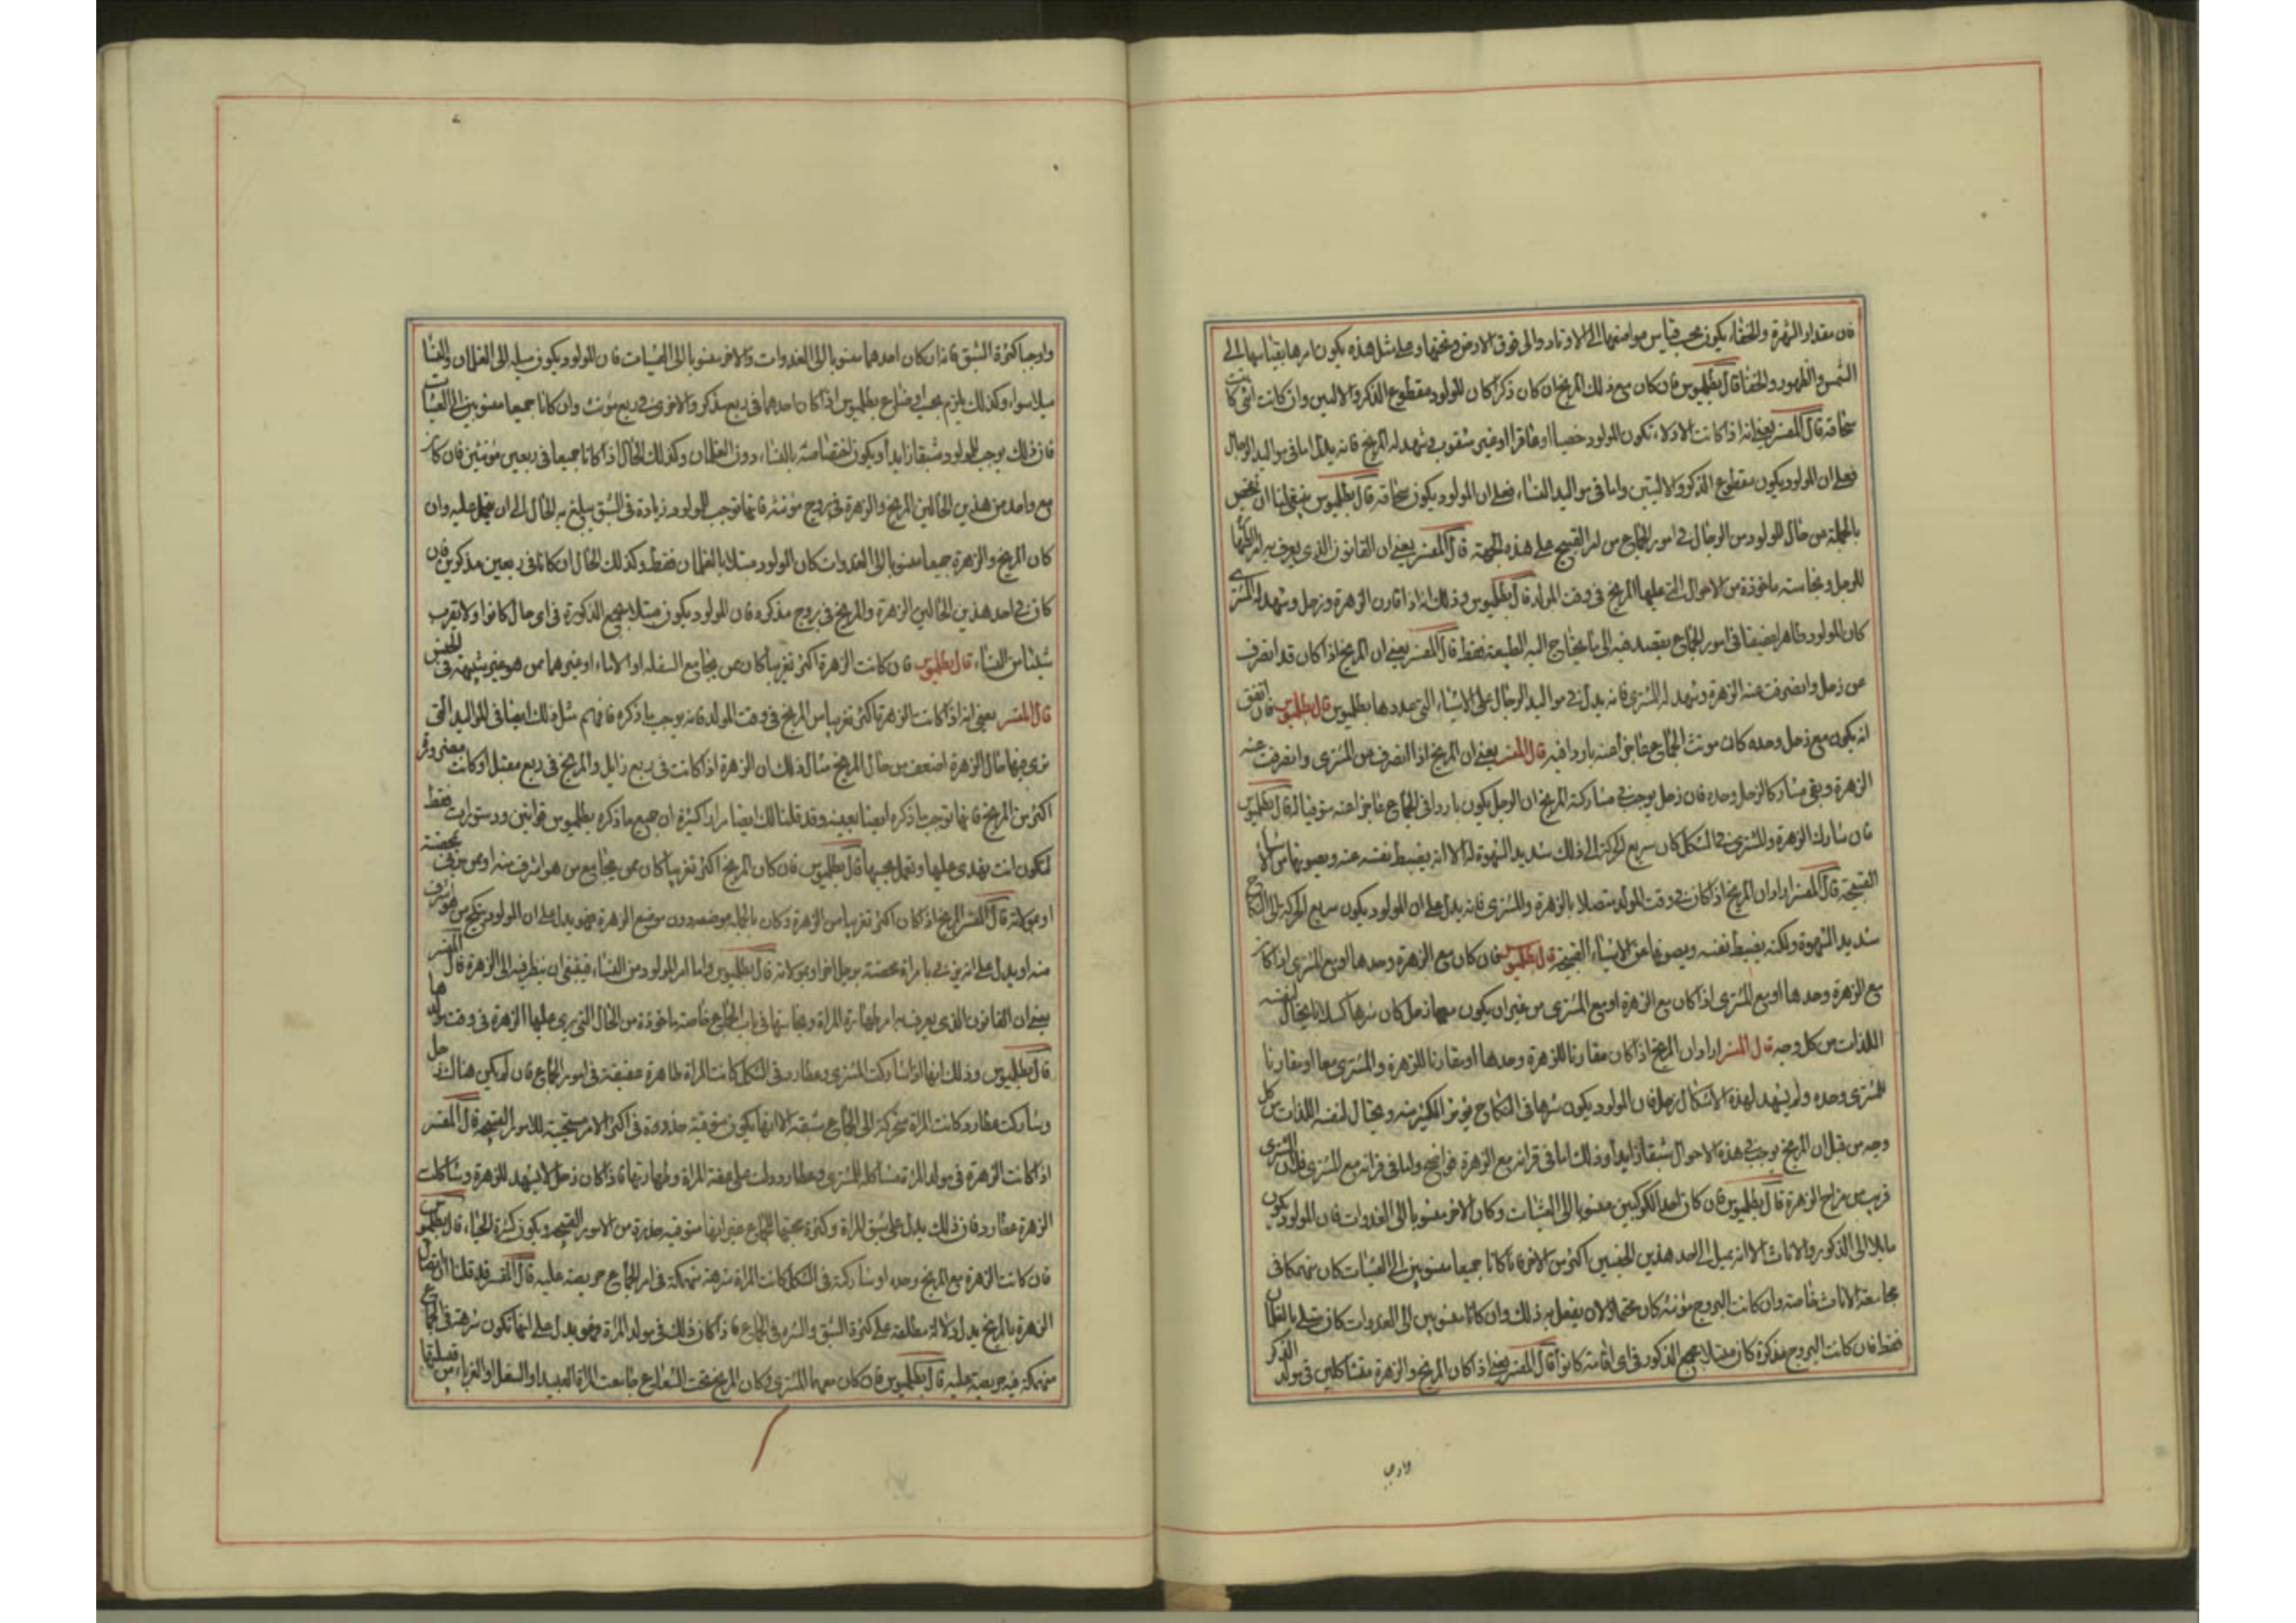 فان مقدار الشهرة والخفاء يكون بحسب قياس مواضعهما الى الاوتاد والى فوق الارض وتحتها وعلى مثل هذه يكون امرها بقياسها الى
الشمس والظهور والخفا قال بطلميوس فان كان مع ذلك المريخ ان كان ذكرا كان المولود مقطوع الذكر والاليين وان كانت انثى كانت
سحاقة قال المفسر يعنى انه اذا كانت الادلاء تكون المولود خصيا او عاقرا او غير مثقوب وشهد له المريخ فانه يدل اما فى مواليد الرجال
فعلى ان المولود يكون مقطوع الذكر والاليتين واما فى مواليد النساء فعلى ان المولود يكون سحاقة قال بطلميوس ينبغى لنا ان نفحص
بالجملة من حال المولود من الرجال فى امور الجماع من امر القبيح على هذه الجهة قال المفسر يعنى ان القانون الذى يعرف به امر الطهارة
للرجل ونجاسته ماخوذة من الاحوال التى عليها المريخ فى وقت المولد قال بطلميوس وذلك انه اذا فارق الزهرة وزحل وشهد له المشترى
كان المولود طاهرا عفيفا فى امور الجماع يقصد فيه الى ما يحتاج اليه الطبيعة فقط قال المفسر يعنى ان المريخ اذا كان قد انصرف
عن زحل وانصرفت عنه الزهرة وشهد له المشترى فانه يدل فى مواليد الرجال على الاشياء التى عددها بطلميوس قال بطلميوس فان اتفق
انه يكون مع زحل وحده كان مونث الجماع عاجزا عنه باردا فيه قال المفسر يعنى ان المريخ اذا انصرف عن المشترى وانصرفت عنه
الزهرة وبقى مشاركا لزحل وحده فان زحل يوجب فى مشاركته المريخ ان الرجل يكون باردا فى الجماع عاجزا عنه متوقيا له قال بطلميوس
فان شارك الزهرة والمشترى فى الشكل كان سريع الحركة الى ذلك شديد الشهوة له الا انه يضبط نفسه عنه ويصونها من الاشياء
القبيحة قال المفسر اراد ان المريخ اذا كان فى وقت المولد متصلا بالزهرة والمشترى فانه يدل على ان المولود يكون سريع الحركة الى النكاح
شديد الشهوة ولكنه يضبط نفسه ويصونها عن الاشياء القبيحة قال بطلميوس فان كان مع الزهرة وحدها او مع المشترى اذا كان
مع الزهرة وحدها او مع المشترى اذا كان مع الزهرة او مع المشترى من غير ان يكون معهما زحل كان شرها كسلانا يحتال لنفسه
اللذات من كل وجه قال المفسر اراد ان المريخ اذا كان مقارنا للزهرة وحدها او مقارنا للزهرة والمشترى معا او مقارنا
للمشترى وحده ولم يشهد لهذه الاشكال زحل فان المولود يكون شرها فى النكاح يؤثر الكثير منه ويحتال لنفسه اللذات من كل
وجه من قبل ان المريخ يوجب فى هذه الاحوال شبقا زايدا وذلك اما فى قرانه مع الزهرة فواضح واما فى قرانه مع المشترى فلان المشترى
قريب من مزاج الزهرة قال بطلميوس فان كان احد الكوكبين منسوبا الى العشيات وكان الاخر منسوبا الى الغدوات فان المولود يكون
مايلا الى الذكور والاناث الا انه يميل الى احد هذين الجنسين اكثر من الاخر فاذا كانا جميعا منسوبين الى العشيات كان منهمكا فى
مجامعة الاناث خاصة وان كانت البروج مؤنثة كان محتملا لان يفعل به ذلك وان كانا منسوبين الى الغدوات كان مبتلى بالغلمان
فقط فان كانت البروج مذكرة كان مبتلا بجميع الذكور فى اى قامة كانوا قال المفسر يعنى اذا كان المريخ والزهرة متشاكلين فى مولد الذكر
واوجبا
واوجبا كثرة الشبق فانه ان كان احدهما منسوبا الى الغدوات والاخر منسوبا الى العشيات فان المولود يكون ميله الى الغلمان والنساء
ميلا سواء وكذلك يلزم بحسب اوضاع بطلميوس اذا كان احدهما فى ربع مذكر والاخر فى ربع مؤنث وان كانا جميعا منسوبين الى العشيات
فان ذلك يوجب للمولود شبقا زايدا ويكون اختصاصه بالنساء دون الغلمان وكذلك الحال اذا كانا جميعا فى ربعين مؤنثين فان كان
مع واحد من هذين الحالين المريخ والزهرة فى بروج مؤنثة فانها توجب للمولود زيادة فى الشبق يبلغ به الحال الى ان يحمل عليه وان
كان المريخ والزهرة جميعا منسوبا الى الغدوات كان المولود مبتلا بالغلمان فقط وكذلك الحال ان كانا فى ربعين مذكرين فان
كان فى احد هذين الحالين الزهرة والمريخ فى بروج مذكره فان المولود يكون مبتلا بجميع الذكورة فى اى حال كانوا ولا يقرب
شيئا من النساء قال بطلميوس فان كانت الزهرة اكثر تغريبا كان ممن يجامع السفله او الاماء او غيرهما ممن هو غير شبيهه فى الجنس
قال المفسر يعنى انه اذا كانت الزهرة اكثر تغريبا من المريخ فى وقت المولد فانه يوجب ما ذكره فافهم مثل ذلك ايضا فى المواليد التى
ترى فيها حال الزهرة اضعف من حال المريخ مثال ذلك ان الزهرة اذا كانت فى ربع زايل والمريخ فى ربع مقبل او كانت
اكثر من المريخ فانها توجب ما ذكره ايضا بعينه وقد قلنا لك ايضا مرارا كثيرة ان جميع ما ذكره بطلميوس قوانين ودستورات فقط
لتكون انت تهتدى عليها وتعمل بحسبها قال بطلميوس فان كان المريخ اكثر تغريبا كان ممن يجامع من هو اشرف منه او ممن هى محصنة
او مولاته قال المفسر المريخ اذا كان اكثر تغريبا من الزهرة وكان بالجملة موضعه دون موضع الزهرة فهو يدل على ان المولود ينكح من هو اشرف
منه او يدل على انه يزنى بامراة محصنة برجل اخر او بمولاته قال بطلميوس واما امر المولود من النساء فينبغى ان ينظر فيه الى الزهرة قال المفسر
يعنى ان القانون الذى يعرف به امر طهارة المراة ونجاستها فى باب الجماع خاصة ماخوذة من الحال التى يرى عليها الزهرة فى وقت مولدها
قال بطلميوس وذلك انها اذا شاركت المشترى وعطارد فى الشكل كانت المراة طاهرة عفيفة فى امور الجماع فان لم يكن هناك زحل
وشاركت عطارد كانت المراة متحركة الى الجماع شبقة الا انها يكون متوقية حذورة فى اكثر الامر مستحيية للامور القبيحة قال المفسر
اذا كانت الزهرة فى مولد المرة مشاكلة المشترى وعطارد دلت على عفة المراة وطهارتها فاذا كان زحل لا يشهد للزهرة وشاكلت
الزهرة عطارد فان ذلك يدل على شبق المراة وكثرة محبتها للجماع غير انها متوقية حذرة من الامور القبيحة ويكون كثيرة الحياء قال بطلميوس
فان كانت الزهرة مع المريخ وحده او شاركته فى الشكل كانت المراة شرهة منهمكة فى امر الجماع حريصة عليه قال المفسر قد قلنا ان اتصال
الزهرة بالمريخ يدل دلالة مطلقة على كثرة الشبق والشره فى الجماع فاذا كان ذلك فى مولد المرة فهو يدل على انها تكون شرهة فى الجماع
منهمكة فيه حريصة عليه قال بطلميوس فان كان معهما المشترى وكان المريخ تحت الشعاع جامعت المراة العبيد او السفل او الغرباء من